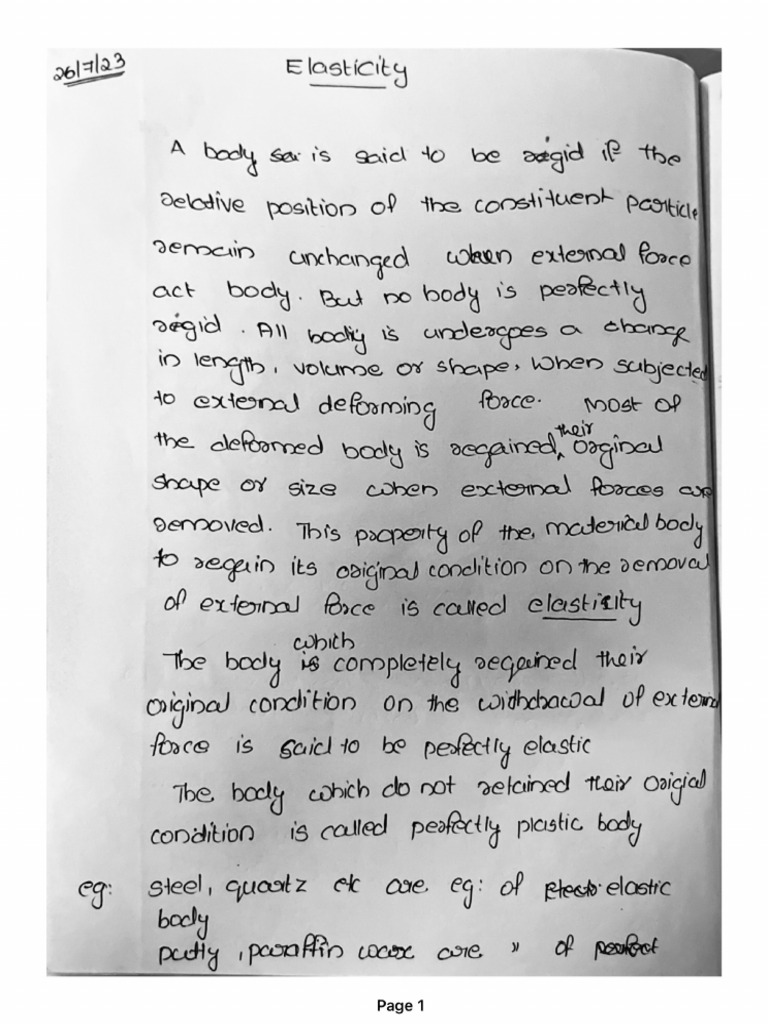 26/7/23
Elasticity
A body is said to be rigid if the
relative position of the constituent particle
remain unchanged when external force
act body. But no body is perfectly
rigid. All body is undergoes a change
in length, volume or shape, when subjected
to external deforming force. Most of
their
the deformed body is regained, orginal
shape or size when external forces are
removed. This property of the, material body
to regain its original condition on the removal
of external force is called elasticity
which
The body is completely regained their
original condition on the withdrawal of external
force is said to be perfectly elastic
The body which do not retained their origial
condition is called perfectly plastic body
eg: steel, quartz etc are. eg: of elastic
body
putty, paraffin wax are " of perfect
Page 1